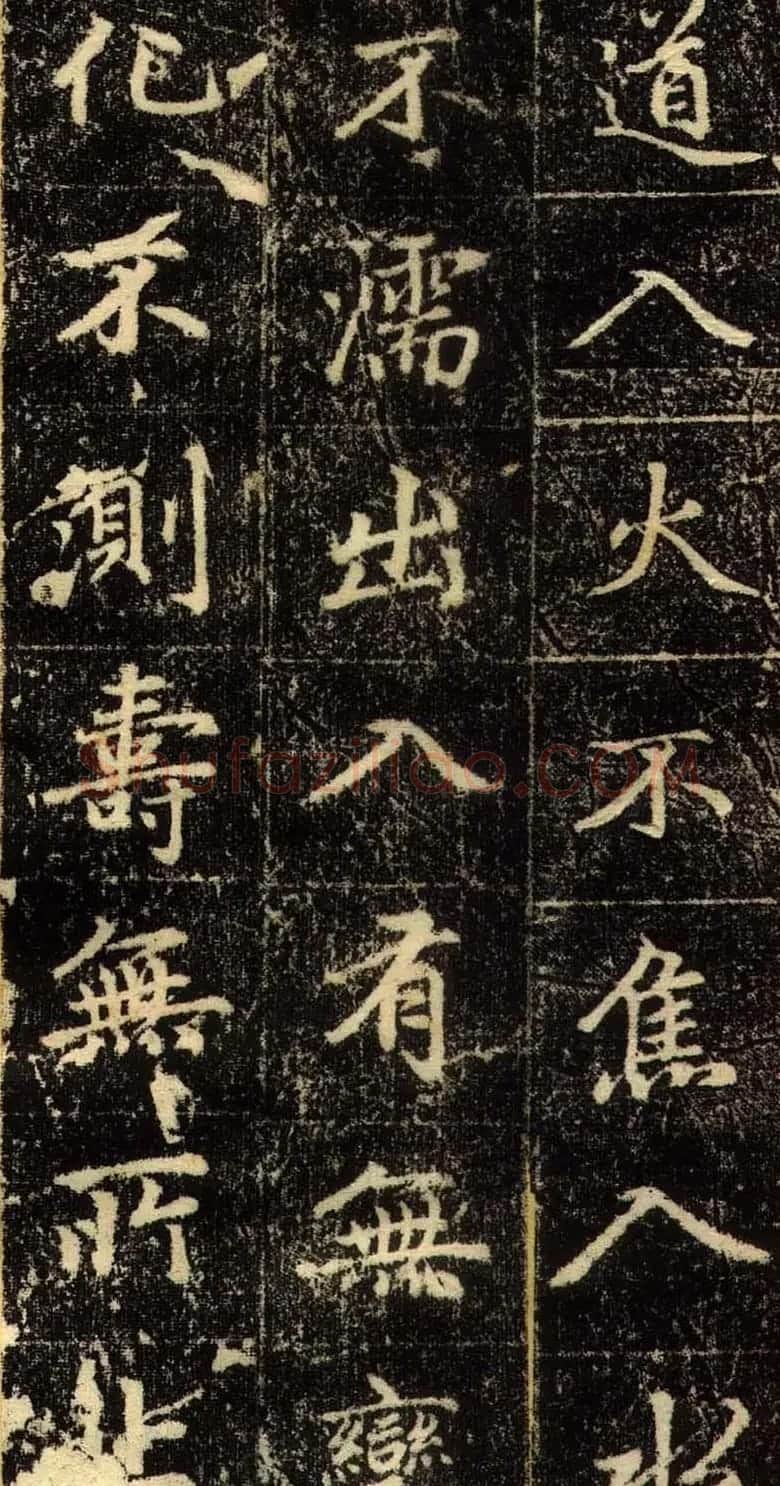 道入火不焦入水
不濡出入有無變
化不測壽無所止
shufaziliao.COM